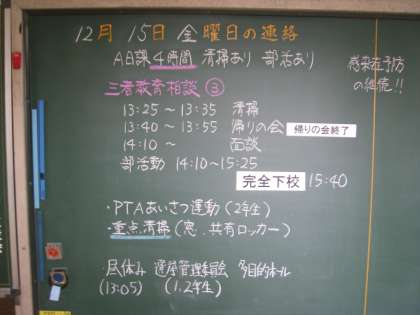 12月 15日 金曜日の連絡
A日課4時間 清掃あり 部活あり
感染症予防
の継続!!
三者教育相談 ③
13:25 ～ 13:35 清掃
13:40 ～ 13:55 帰りの会 帰りの会終了
14:10 ～ 面談
部活動 14:10～15:25
完全下校 15:40
・PTAあいさつ運動(2年生)
・重点清掃(窓、共有ロッカー)
・昼休み 選挙管理委員会 多目的ホール
(13:05) (1.2年生)